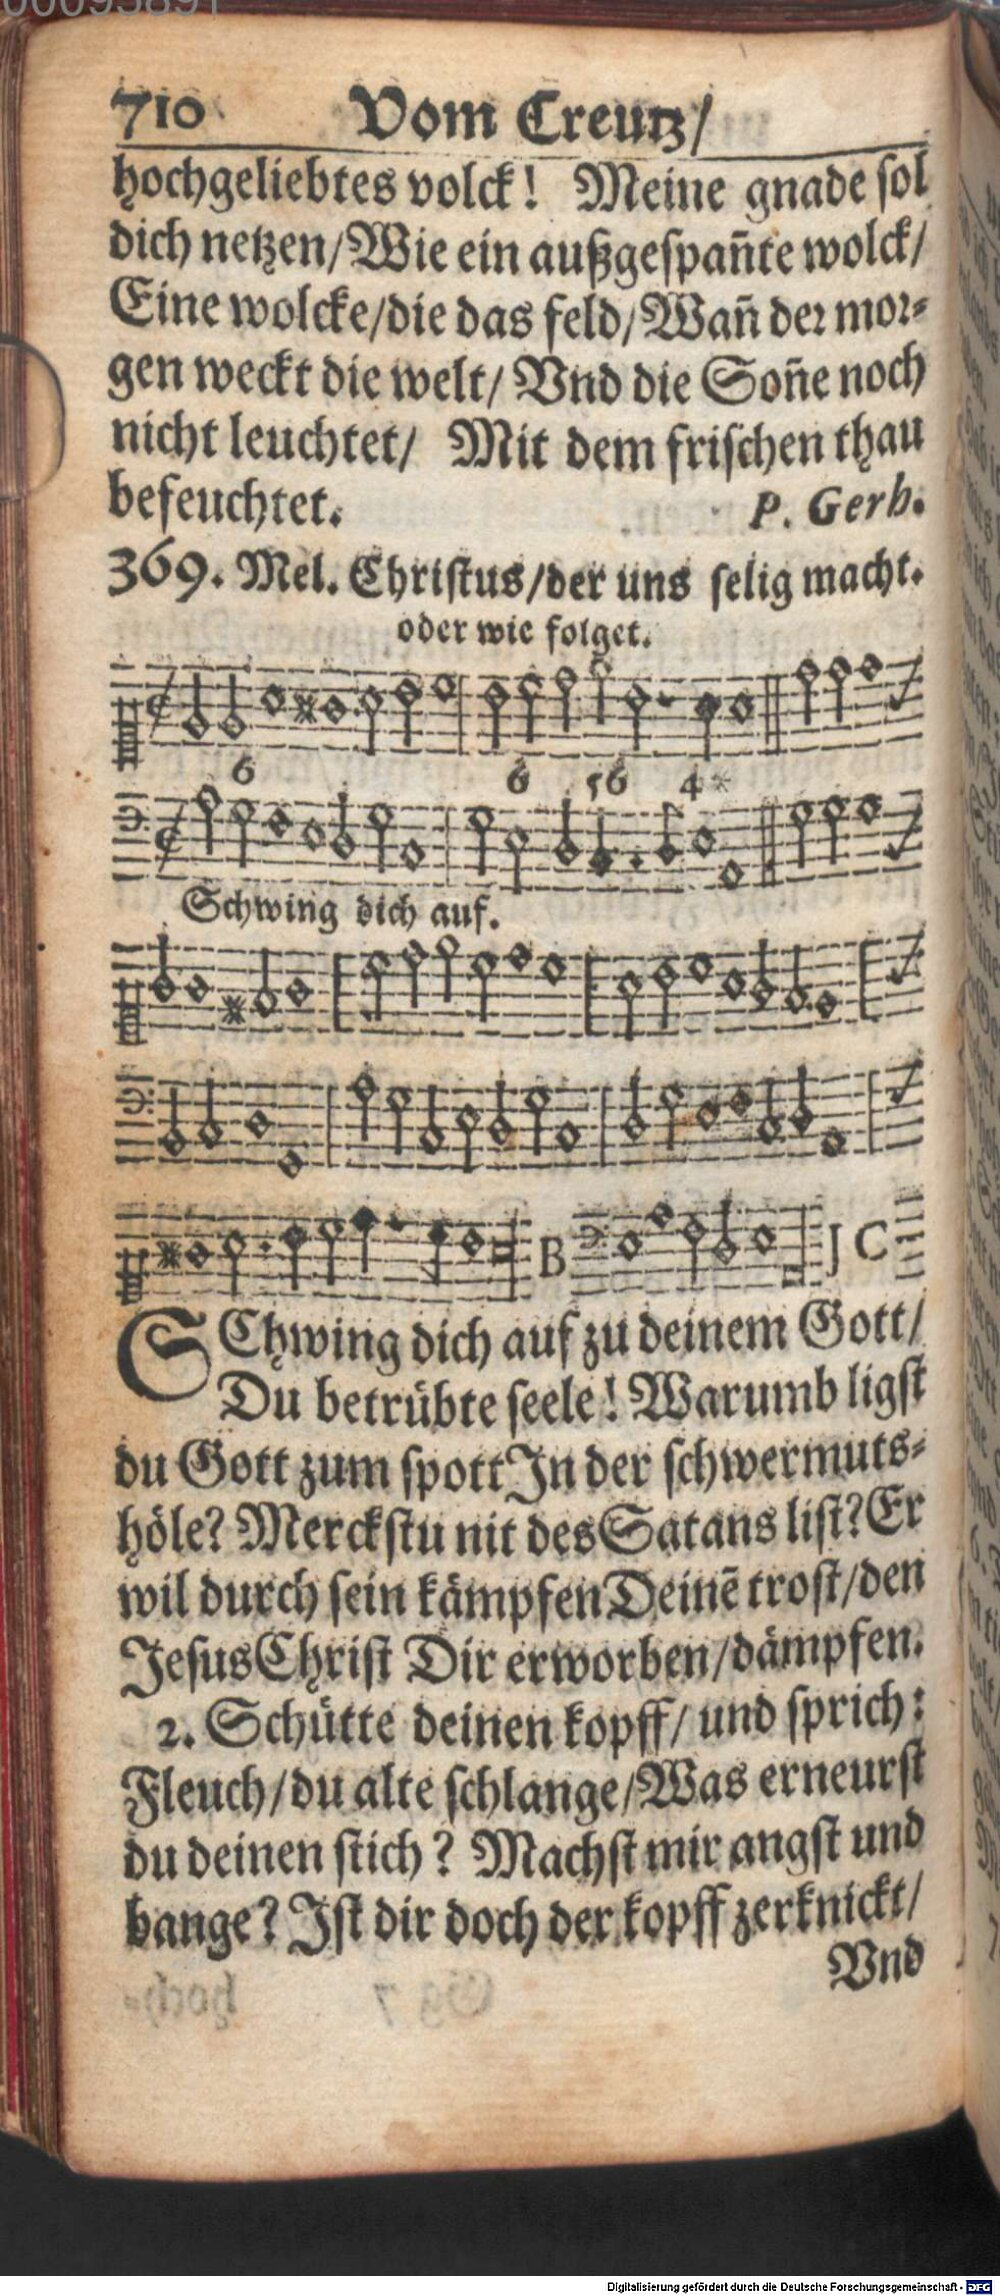 00095891
710 Vom Creutz/
hochgeliebtes volck! Meine gnade sol
dich netzen/Wie ein außgespan̄te wolck/
Eine wolcke/die das feld/Wan̄ der mor-
gen weckt die welt/ Vnd die Son̄e noch
nicht leuchtet/ Mit dem frischen thau
befeuchtet. P. Gerh.
369. Mel. Christus/der uns selig macht.
oder wie folget.
6 6 56 4*
Schwing dich auf.
B J C
SChwing dich auf zu deinem Gott/
Du betrübte seele! Warumb ligst
du Gott zum spott In der schwermuts-
höle? Merckstu nit des Satans list? Er
wil durch sein kämpfen Deinē trost/den
Jesus Christ Dir erworben/dämpfen.
2. Schütte deinen kopff/ und sprich:
Fleuch/du alte schlange/Was erneurst
du deinen stich? Machst mir angst und
bange? Ist dir doch der kopff zerknickt/
Vnd
Digitalisierung gefördert durch die Deutsche Forschungsgemeinschaft - DFG